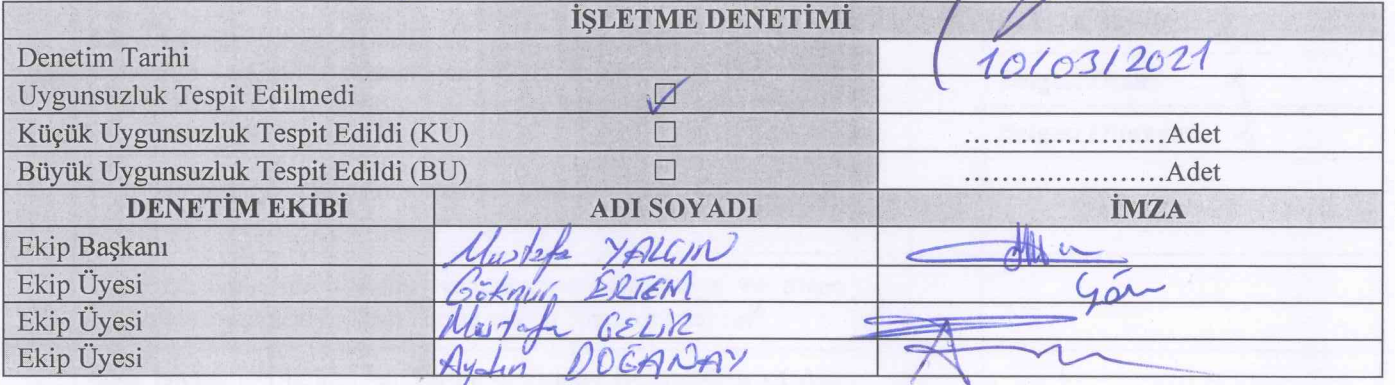 İŞLETME DENETİMİ
Denetim Tarihi 10/03/2021
Uygunsuzluk Tespit Edilmedi ☑
Küçük Uygunsuzluk Tespit Edildi (KU) ☐ ........................Adet
Büyük Uygunsuzluk Tespit Edildi (BU) ☐ ........................Adet
DENETİM EKİBİ ADI SOYADI İMZA
Ekip Başkanı Mustafa YALÇIN
Ekip Üyesi Göknur ERTEM
Ekip Üyesi Mustafa GELİR
Ekip Üyesi Aydın DOĞANAY